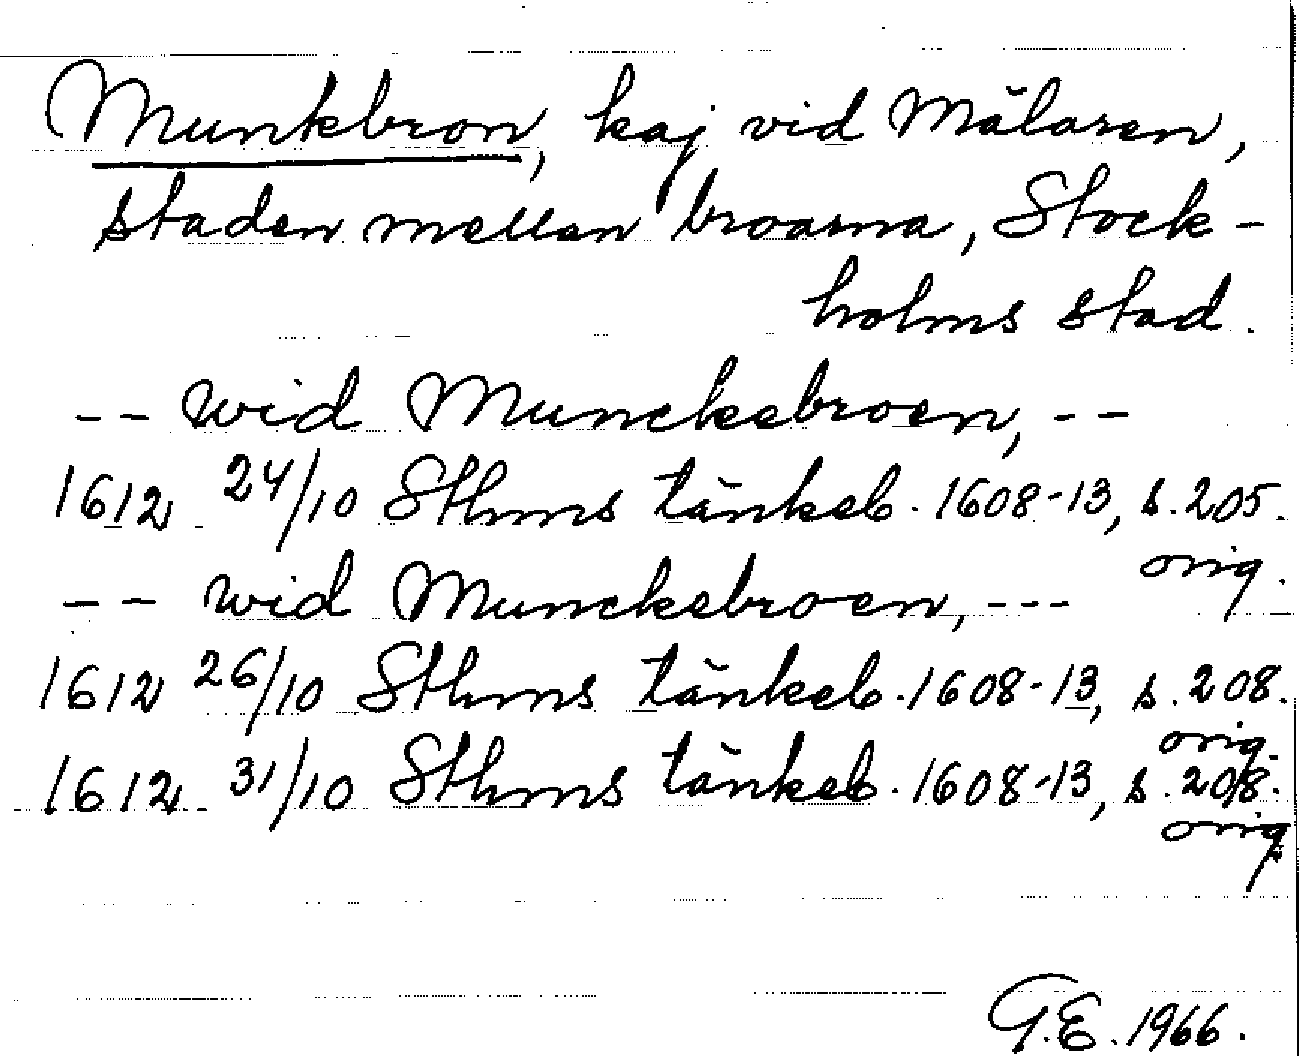 Munkbron, kaj vid Mälaren,
staden mellan broarna, Stock-
holms stad.
-- wid Munckebroen, --
1612 24/10 Sthms tänkeb. 1608-13, s. 205.
orig.
-- wid Munckebroen, ---
1612 26/10 Sthms tänkeb. 1608-13, s. 208.
orig.
1612 31/10 Sthms tänkeb. 1608-13, s. 208.
orig
G.E. 1966.